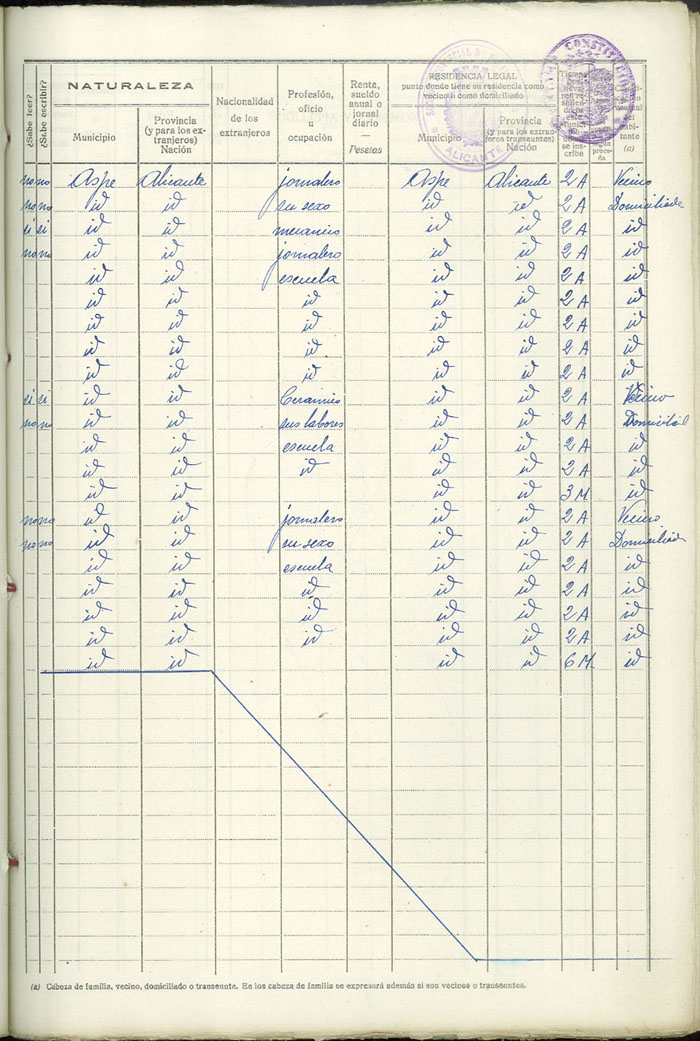 ¿Sabe leer?
¿Sabe escribir?
NATURALEZA
Municipio
Provincia
(y para los ex-
tranjeros)
Nación
Nacionalidad
de los
extranjeros
Profesión,
oficio
u
ocupación
Renta,
sueldo
anual o
jornal
diario
—
Pesetas
RESIDENCIA LEGAL
punto donde tiene su residencia como
vecino o como domiciliado
Municipio
Provincia
(y para los extran-
jeros transeuntes)
Nación
(a)
CONSTITUCIONAL
ALICANTE
no no Aspe Alicante jornalero Aspe Alicante 2 A Vecino
no no id id su sexo id id 2 A Domiciliada
si si id id mecanico id id 2 A id
no no id id jornalero id id 2 A id
id id escuela id id 2 A id
id id id id id 2 A id
id id id id id 2 A id
id id id id id 2 A id
id id id id id 2 A id
si si id id Ceramico id id 2 A Vecino
no no id id sus labores id id 2 A
id id escuela id id 2 A id
id id id id id 2 A id
id id id id 3 M id
no no id id jornalero id id 2 A Vecino
no no id id su sexo id id 2 A Domiciliada
id id escuela id id 2 A id
id id id id id 2 A id
id id id id id 2 A id
id id id id id 2 A id
id id id id 6 M id
(a) Cabeza de familia, vecino, domiciliado o transeunte. En los cabeza de familia se expresará además si son vecinos o transeuntes.